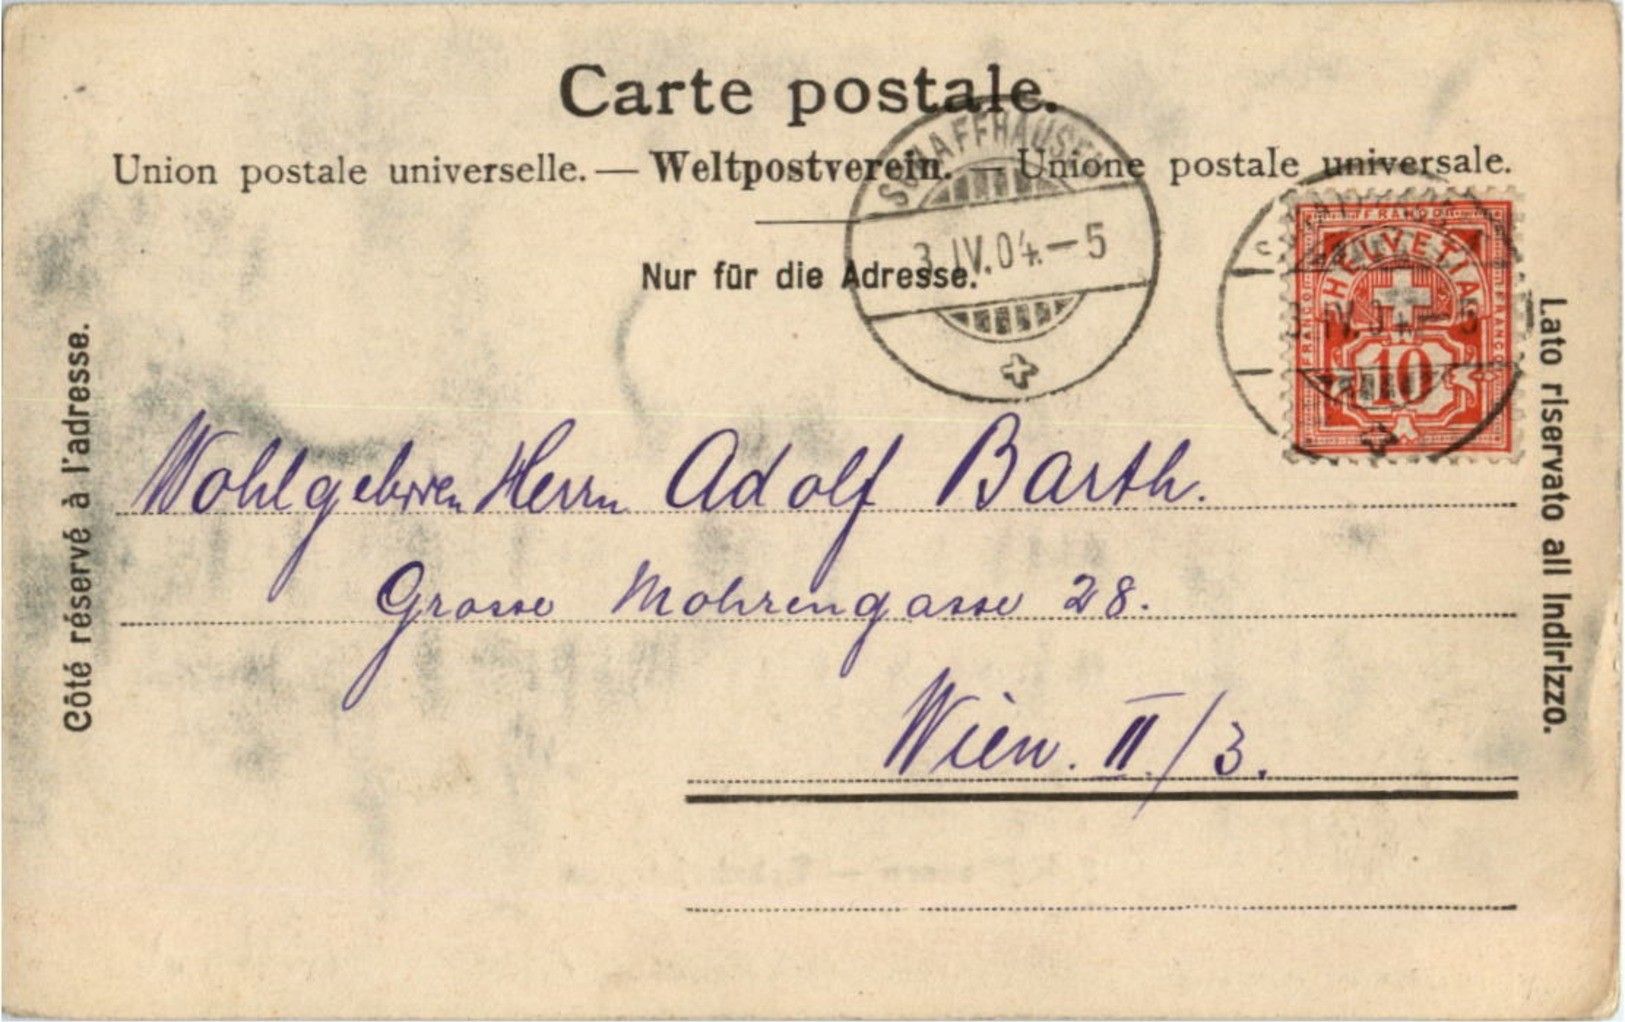 Carte postale.
Union postale universelle. — Weltpostverein. — Unione postale universale.
SCHAFFHAUSEN
3.IV.04.–5
Nur für die Adresse.
FRANCO
HELVETIA
FRANCO
FRANCO
10
3.IV.04.–5
Côté réservé à l'adresse.
Lato riservato all Indirizzo.
Wohlgeboren Herrn Adolf Barth.
Grosse Mohrengasse 28.
Wien. II/3.